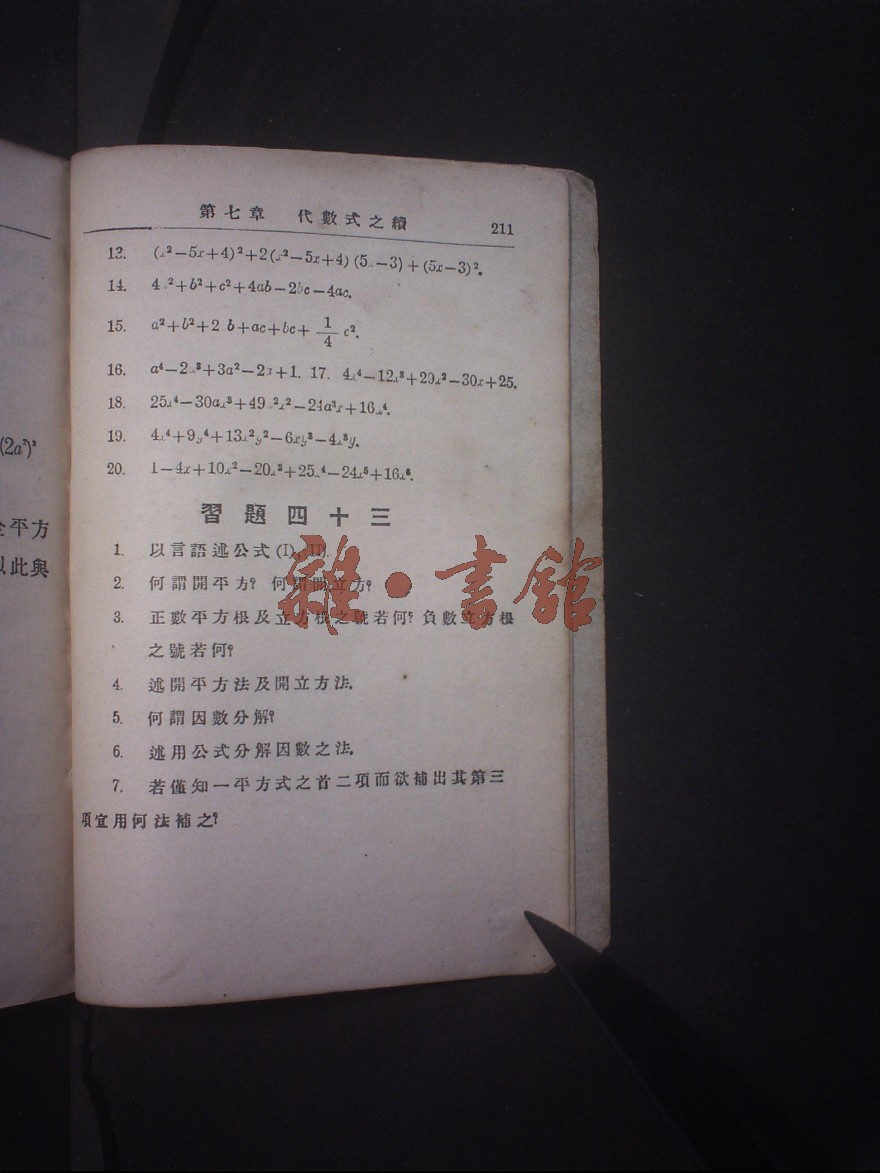 第七章 代數式之續 211
(2a²)²
全平方
以此與
13. (x²−5x+4)²+2(x²−5x+4)(5x−3)+(5x−3)².
14. 4a²+b²+c²+4ab−2bc−4ac.
15. a²+b²+2ab+ac+bc+1/4 c².
16. a⁴−2a³+3a²−2a+1. 17. 4x⁴−12x³+29x²−30x+25.
18. 25x⁴−30ax³+49a²x²−24a³x+16a⁴.
19. 4x⁴+9y⁴+13x²y²−6xy³−4x³y.
20. 1−4x+10x²−20x³+25x⁴−24x⁵+16x⁶.
習題四十三
1. 以言語述公式(I),(II).
2. 何謂開平方? 何謂開立方?
3. 正數平方根及立方根之號若何? 負數立方根
之號若何?
4. 述開平方法及開立方法.
5. 何謂因數分解?
6. 述用公式分解因數之法.
7. 若僅知一平方式之首二項而欲補出其第三
項宜用何法補之?
雜·書館